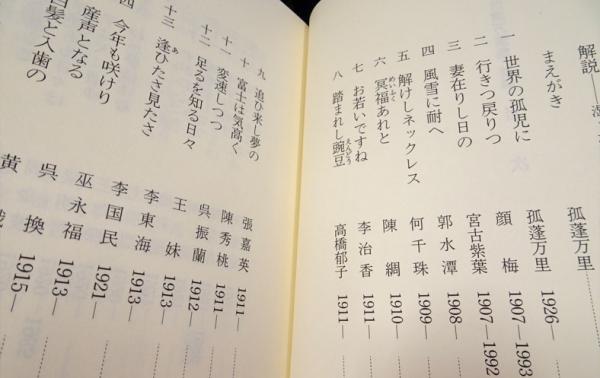 解説―
まえがき 孤蓬万里
一 世界の孤児に 孤蓬万里 1926―
二 行きつ戻りつ 顔梅 1907―1993
三 妻在りし日の 宮古紫葉 1907―1992
四 風雪に耐へ 郭水潭 1908―
五 解けしネックレス 何千珠 1909―
六 冥福あれと 陳綢 1910―
めいふく
七 お若いですね 李治香 1911―
八 踏まれし豌豆 高橋郁子 1911―
えんどう
九 追ひ来し夢の 張嘉英 1911―
十 富士は気高く 陳秀桃 1911―
十一 変速しつつ 呉振蘭 1912―
十二 足るを知る日々 王妹 1913―
十三 逢ひたさ見たさ 李東海 1913―
あ
四 今年も咲けり 李国民 1921―
産声となる 巫永福 1913―
白髪と入歯の 呉換 1915―
黄